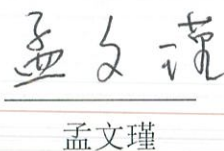 孟文瑾
孟文瑾